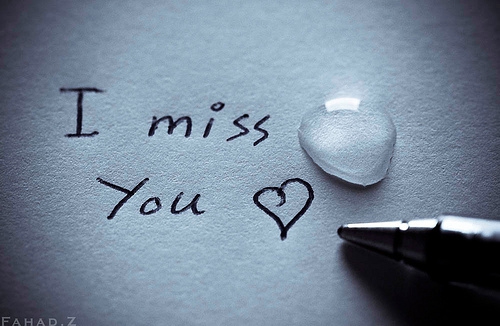 I miss
You
FAHAD.Z